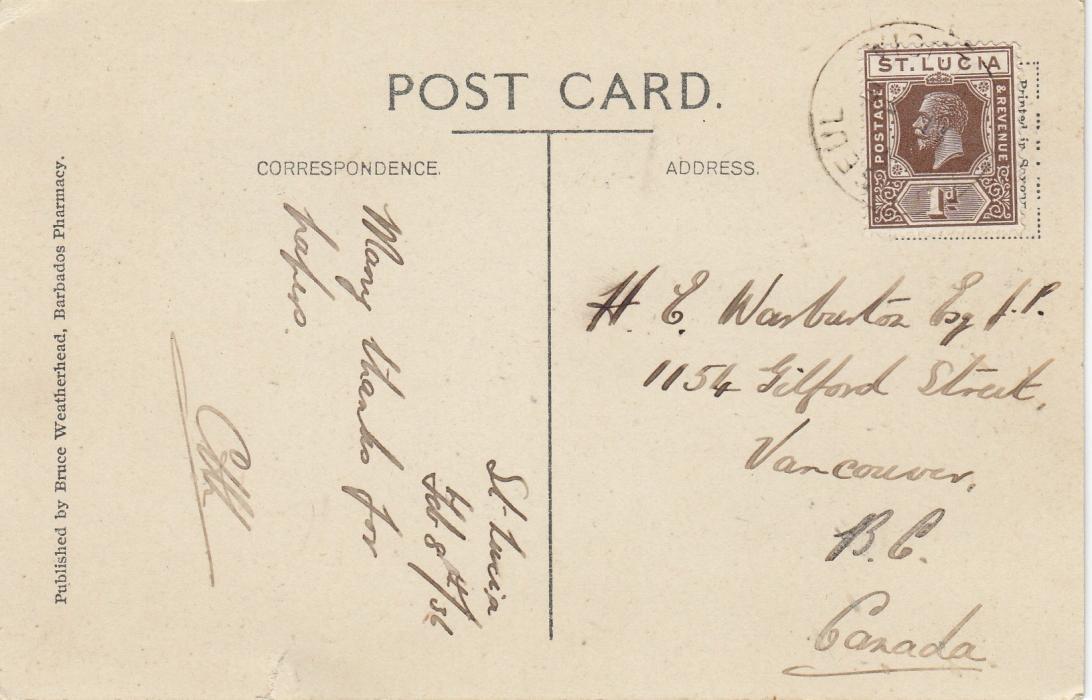 POST CARD.
CORRESPONDENCE.
ADDRESS.
ST. LUCIA
POSTAGE
& REVENUE
1d
Printed in
Published by Bruce Weatherhead, Barbados Pharmacy.
St. Lucia
Feb 8th/36
Many thanks for
papers.
H. C. Warburton Esq J.P.
1154 Gilford Street,
Vancouver,
B.C.
Canada